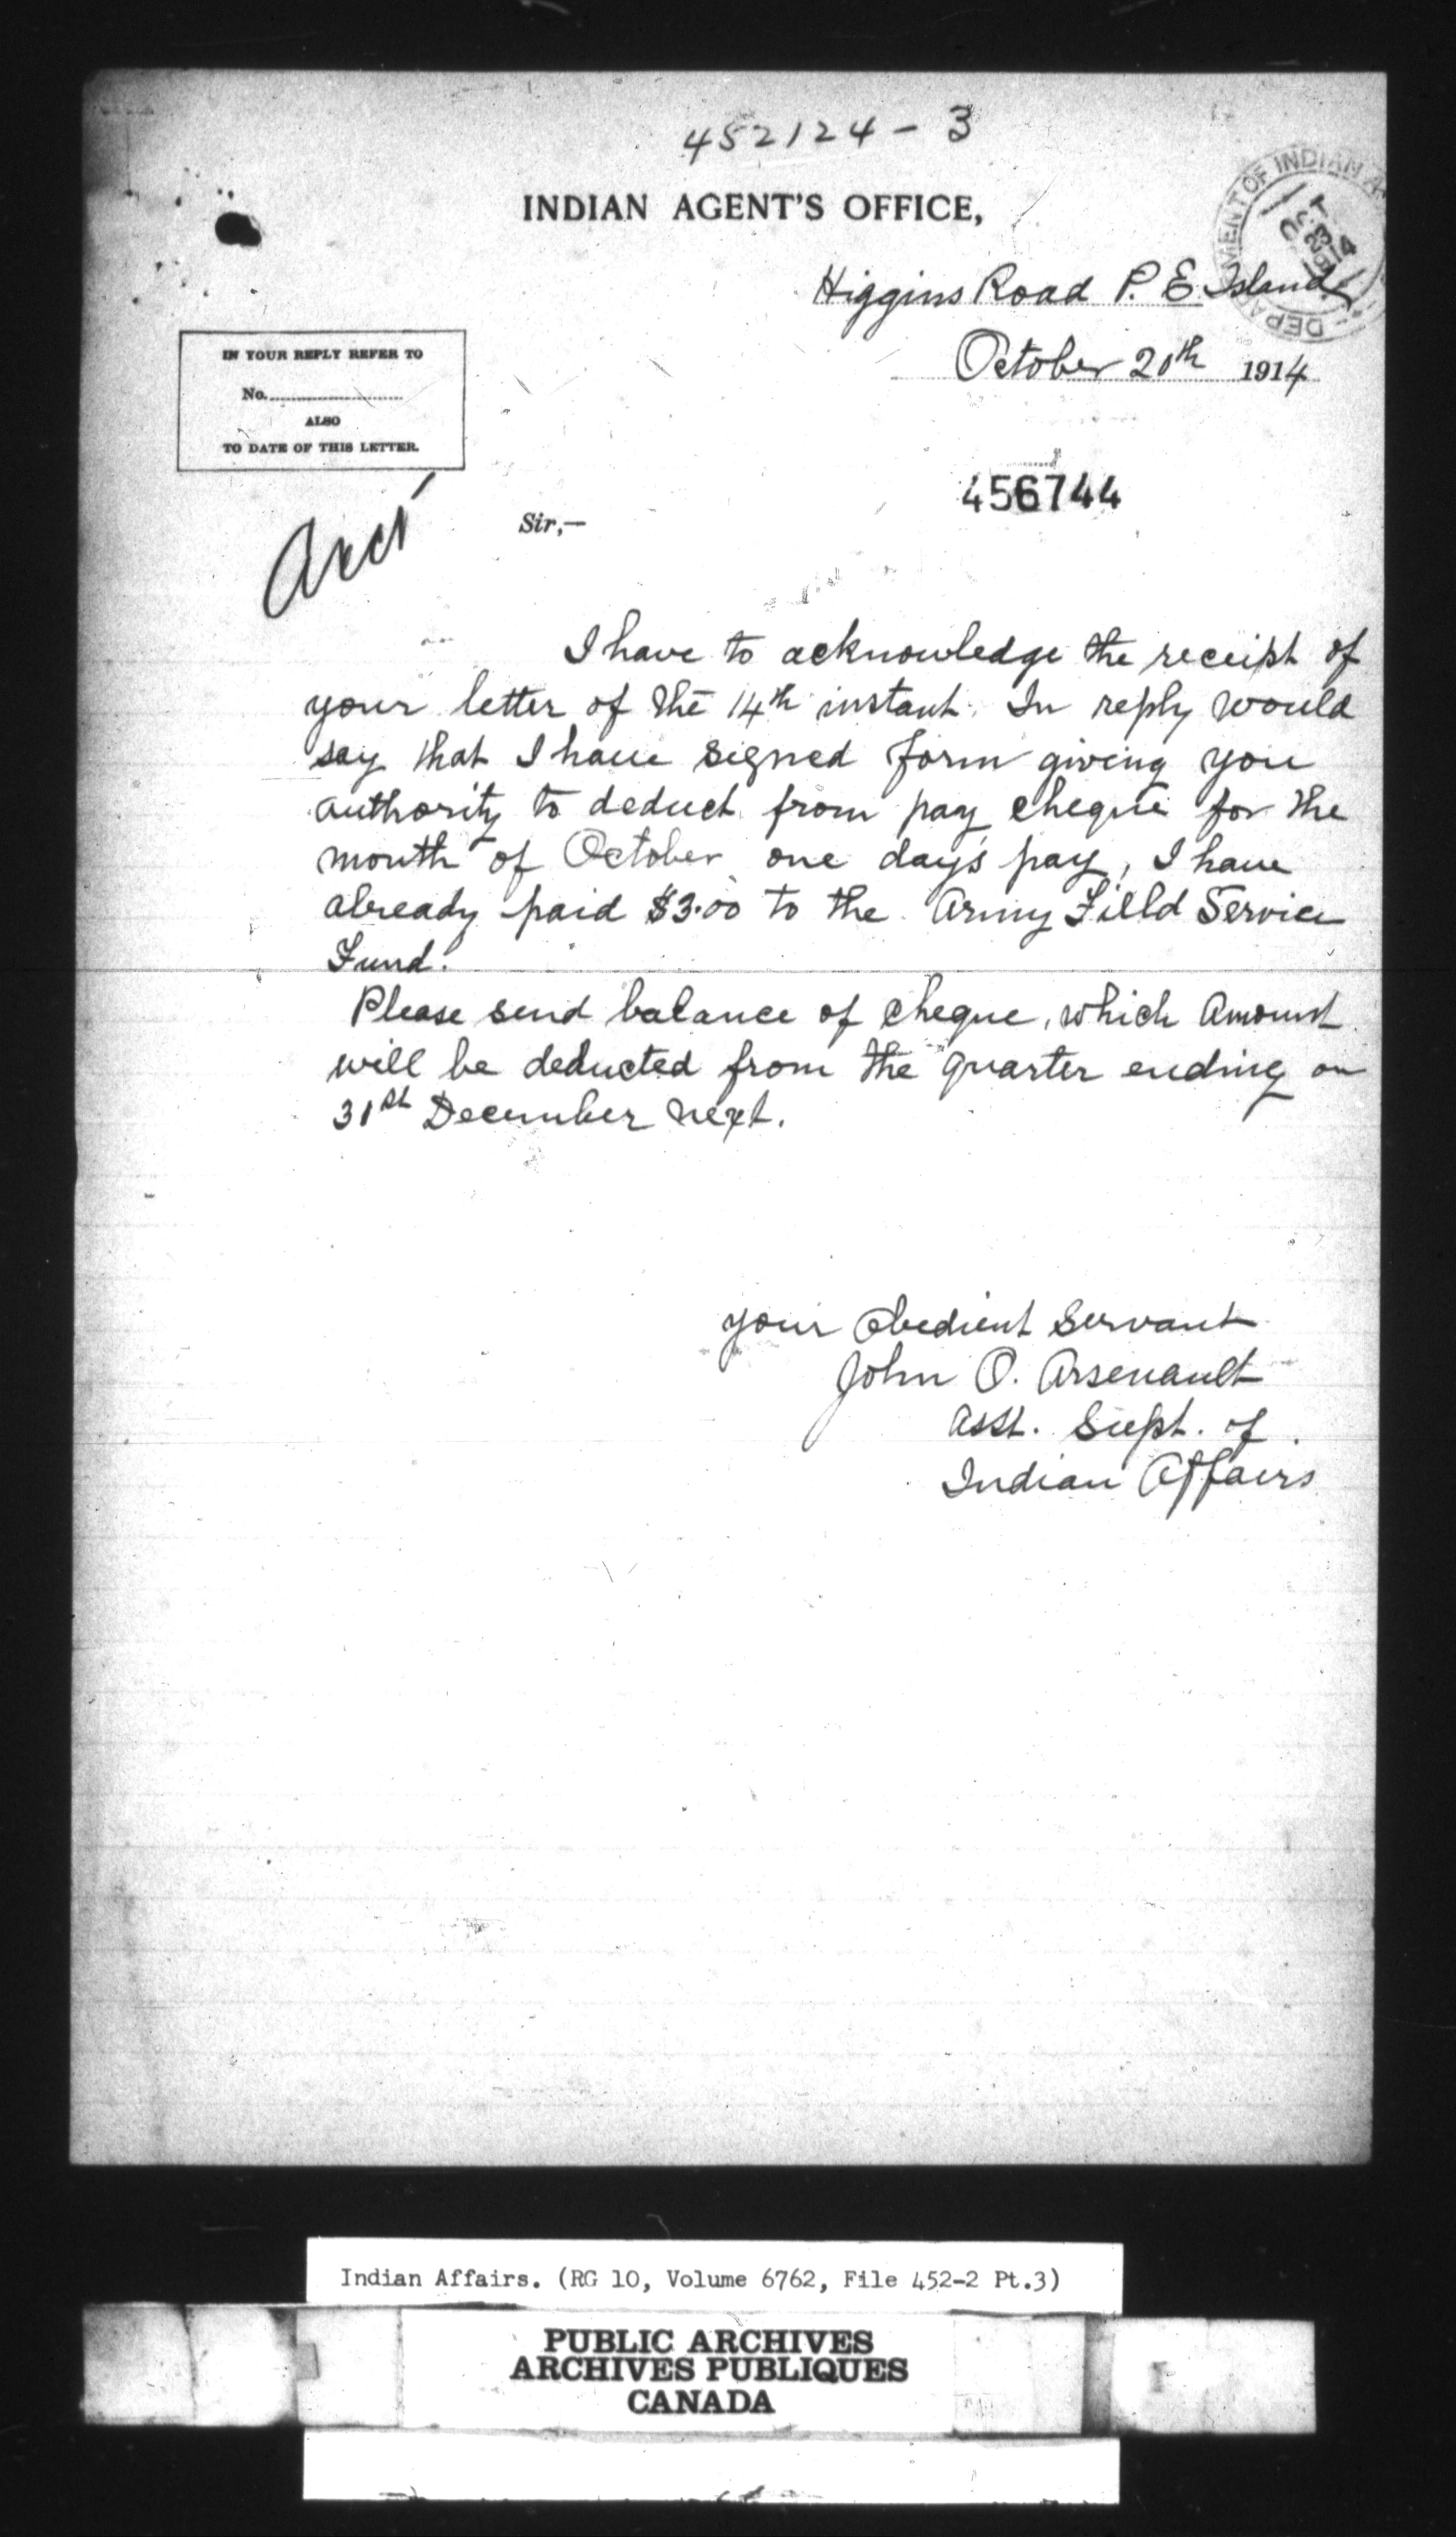 452124-3
INDIAN AGENT'S OFFICE,
DEPARTMENT OF INDIAN
OCT
23
1914
Higgins Road P. E. Island
October 20th 1914
IN YOUR REPLY REFER TO
No.
ALSO
TO DATE OF THIS LETTER.
456744
Sir,—
I have to acknowledge the receipt of
your letter of the 14th instant. In reply would
say that I have signed form giving you
authority to deduct from pay cheque for the
month of October one day's pay, I have
already paid $3.00 to the Army Field Service
Fund.
Please send balance of cheque, which Amount
will be deducted from the quarter ending on
31st December next.
your obedient Servant
John O. Arsenault
Asst. Supt. of
Indian Affairs
Indian Affairs. (RG 10, Volume 6762, File 452-2 Pt.3)
PUBLIC ARCHIVES
ARCHIVES PUBLIQUES
CANADA